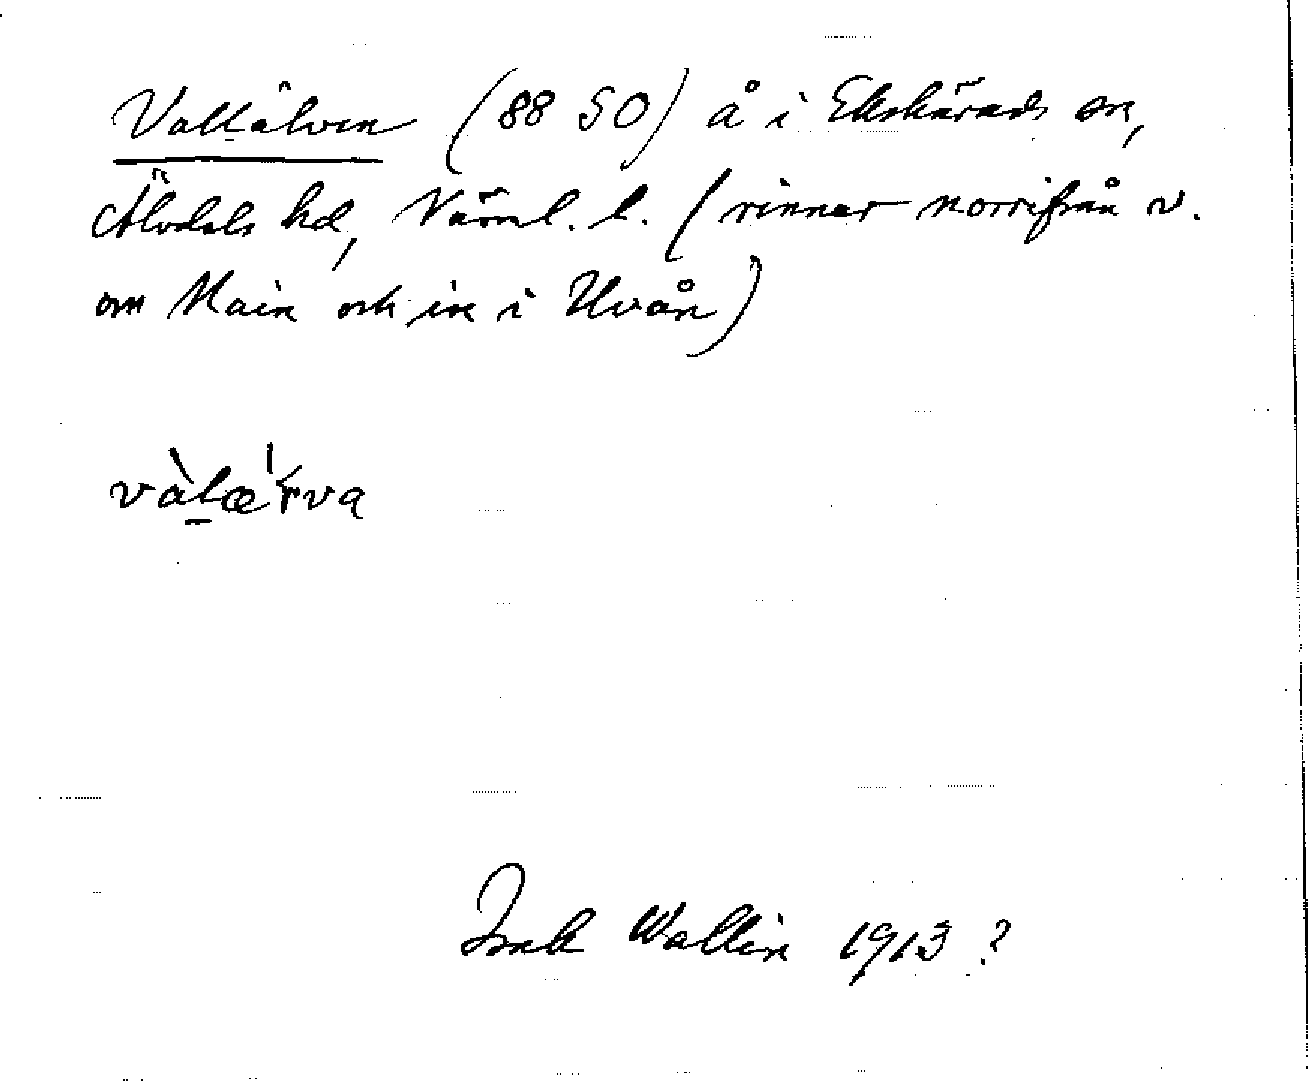 Vallälven (88 50) å i Ekshärads sn,
Älvdals hd, Värml. l. (rinner norrifrån v.
om Main och in i Uvån)
vàlæ'rva
Isak Wallin 1913 ?